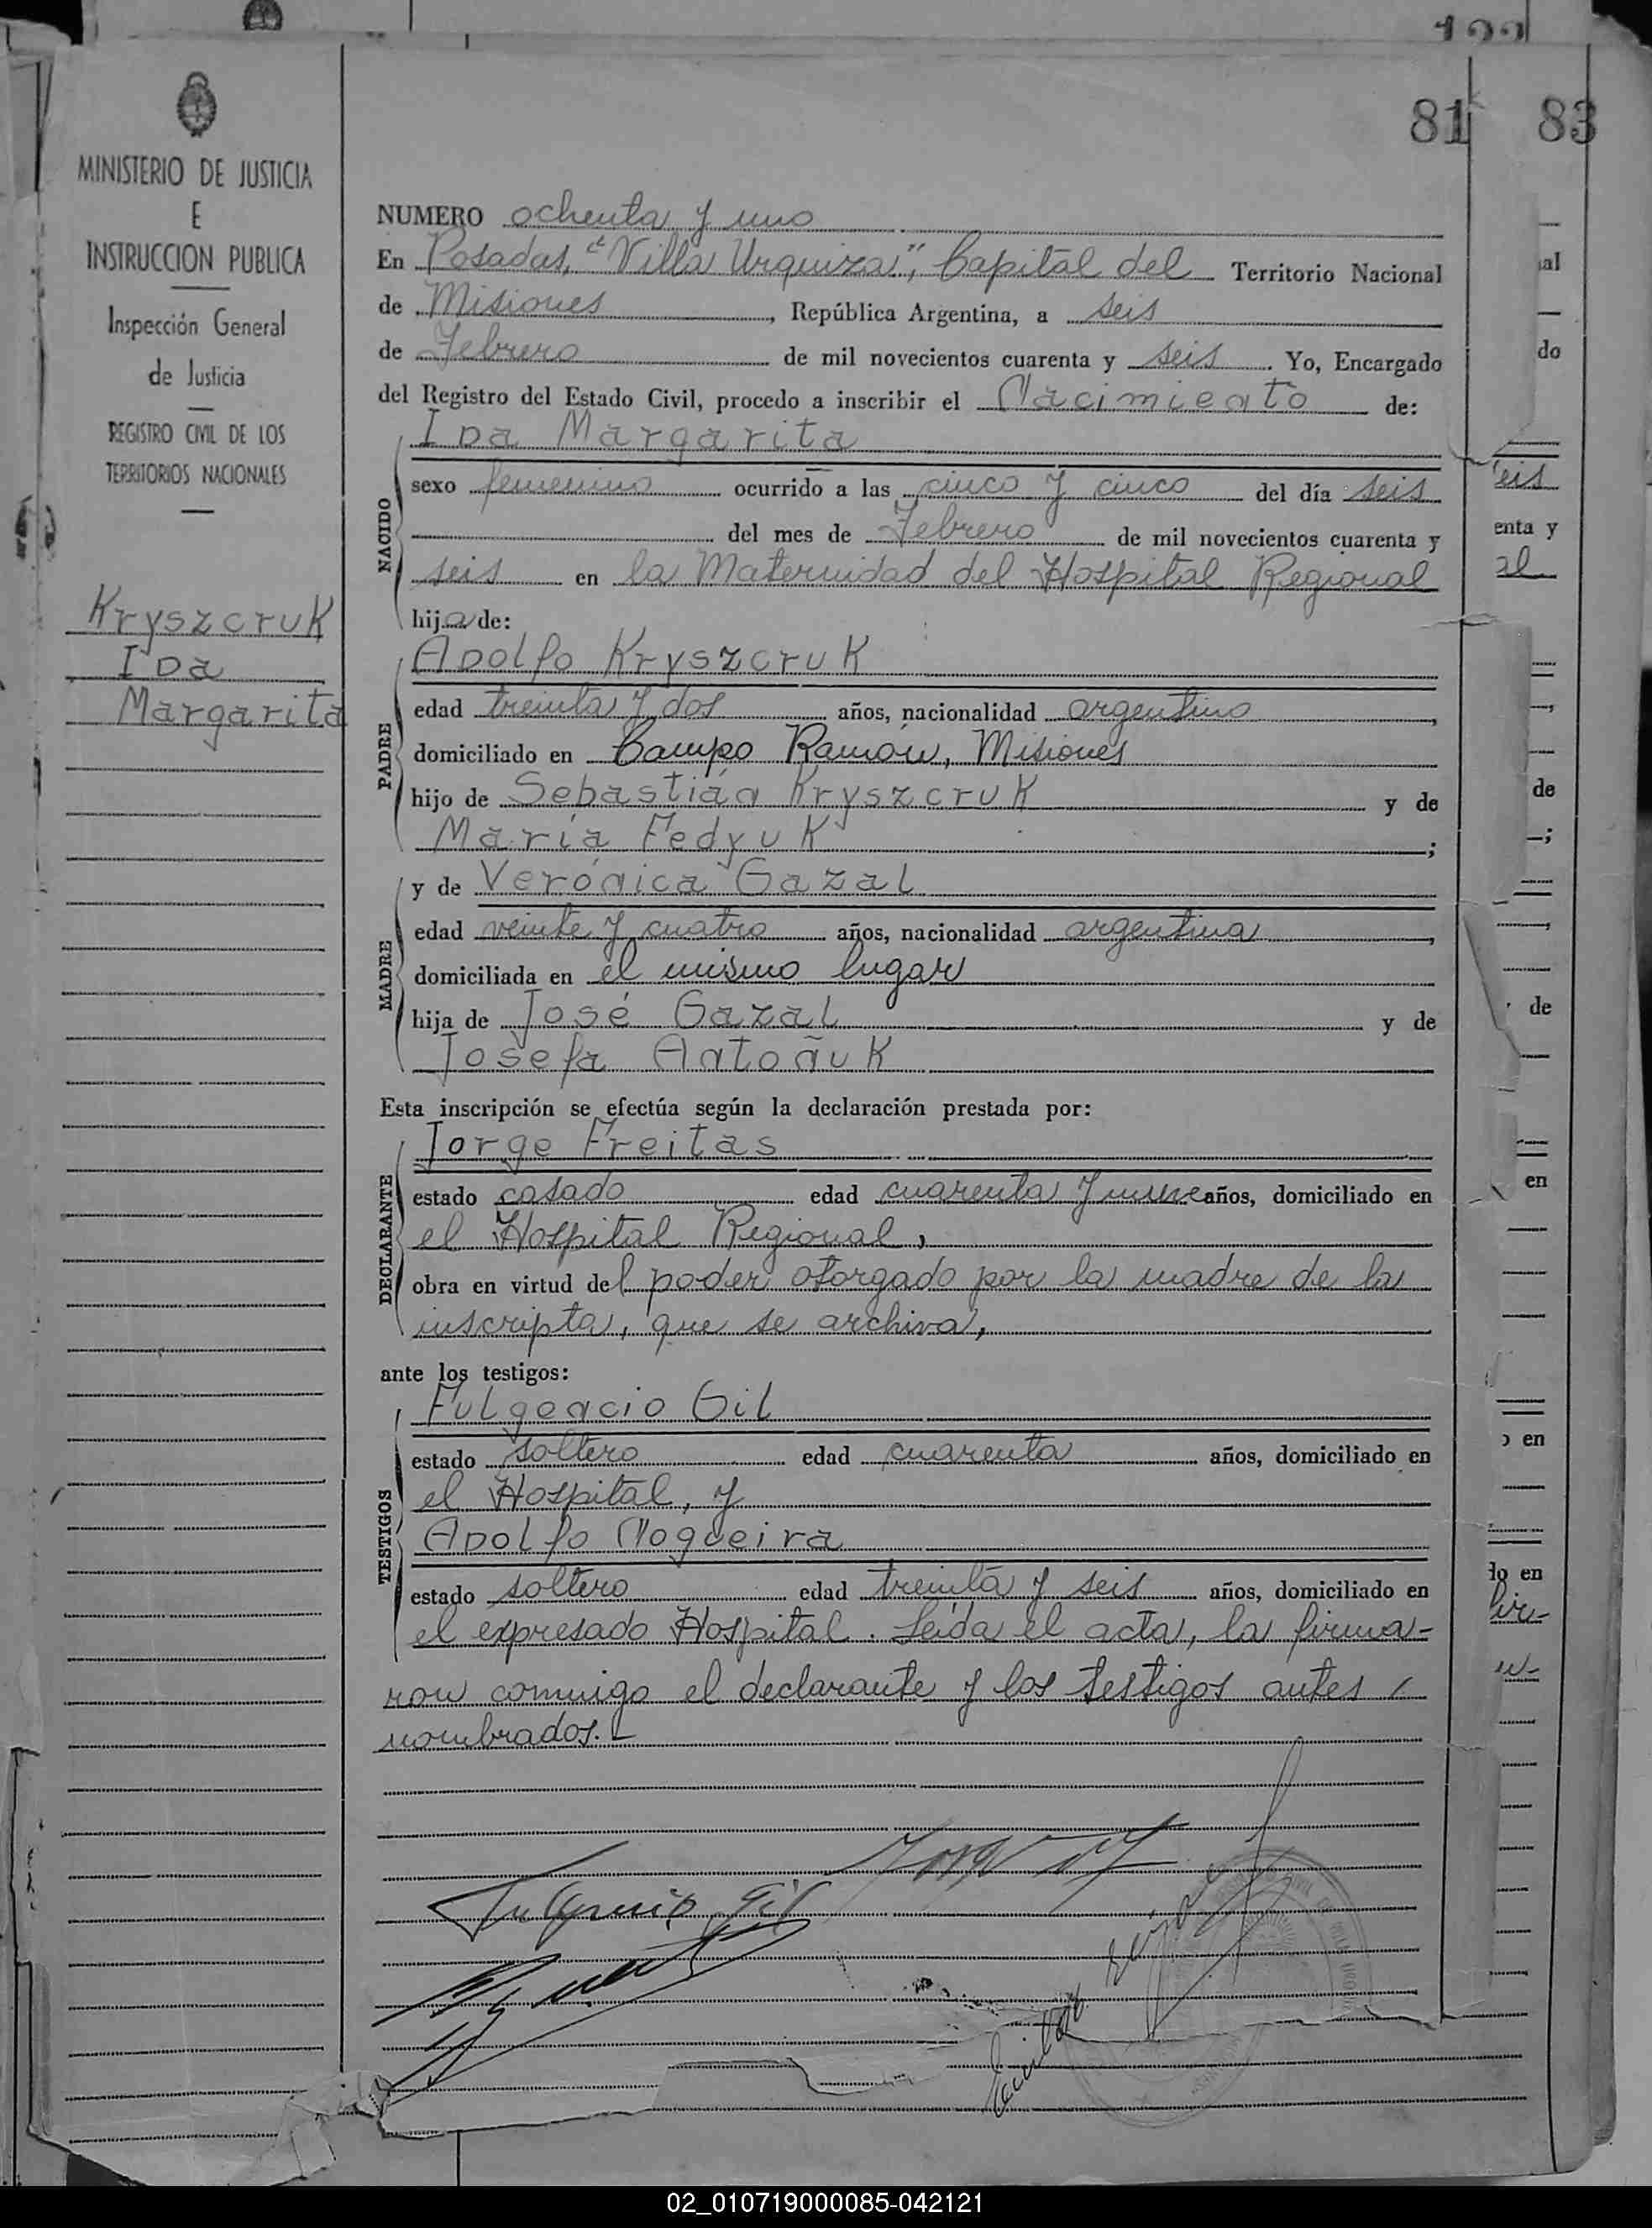 81
83
MINISTERIO DE JUSTICIA
E
INSTRUCCION PUBLICA
Inspección General
de Justicia
REGISTRO CIVIL DE LOS
TERRITORIOS NACIONALES
Kryszcruk
Ida
Margarita
NUMERO ochenta y uno
En Posadas, "Villa Urquiza", Capital del Territorio Nacional
de Misiones, República Argentina, a seis
de Febrero de mil novecientos cuarenta y seis. Yo, Encargado
del Registro del Estado Civil, procedo a inscribir el Nacimiento de:
NACIDO
Ida Margarita
sexo femenino ocurrido a las cinco y cinco del día seis
del mes de Febrero de mil novecientos cuarenta y
seis en la Maternidad del Hospital Regional
hija de:
PADRE
Adolfo Kryszcruk
edad treinta y dos años, nacionalidad argentino,
domiciliado en Campo Ramón, Misiones
hijo de Sebastián Kryszcruk y de
María Fedyuk;
MADRE
y de Verónica Gazal
edad veinte y cuatro años, nacionalidad argentina,
domiciliada en el mismo lugar
hija de José Gazal y de
Josefa Antoñuk
Esta inscripción se efectúa según la declaración prestada por:
DECLARANTE
Jorge Freitas
estado casado edad cuarenta y nueve años, domiciliado en
el Hospital Regional,
obra en virtud del poder otorgado por la madre de la
inscripta, que se archiva,
ante los testigos:
TESTIGOS
Fulgencio Gil
estado soltero edad cuarenta años, domiciliado en
el Hospital, y
Adolfo Nogueira
estado soltero edad treinta y seis años, domiciliado en
el expresado Hospital. Leída el acta, la firma-
ron conmigo el declarante y los testigos antes
nombrados.
Fulgencio Gil
02_010719000085-042121